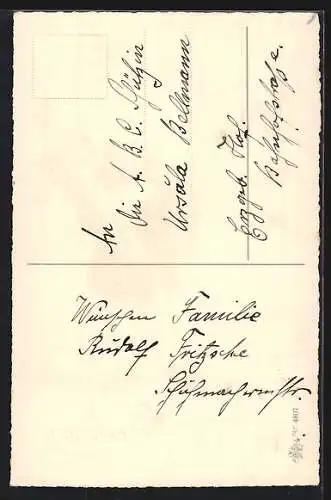 An
Die A. B. C. Schützin
Ursula Bellmann
Erzgeb. Hof.
Bahnhofstraße.
Wünschen Familie
Rudolf Fritzsche
Schuhmachermstr.